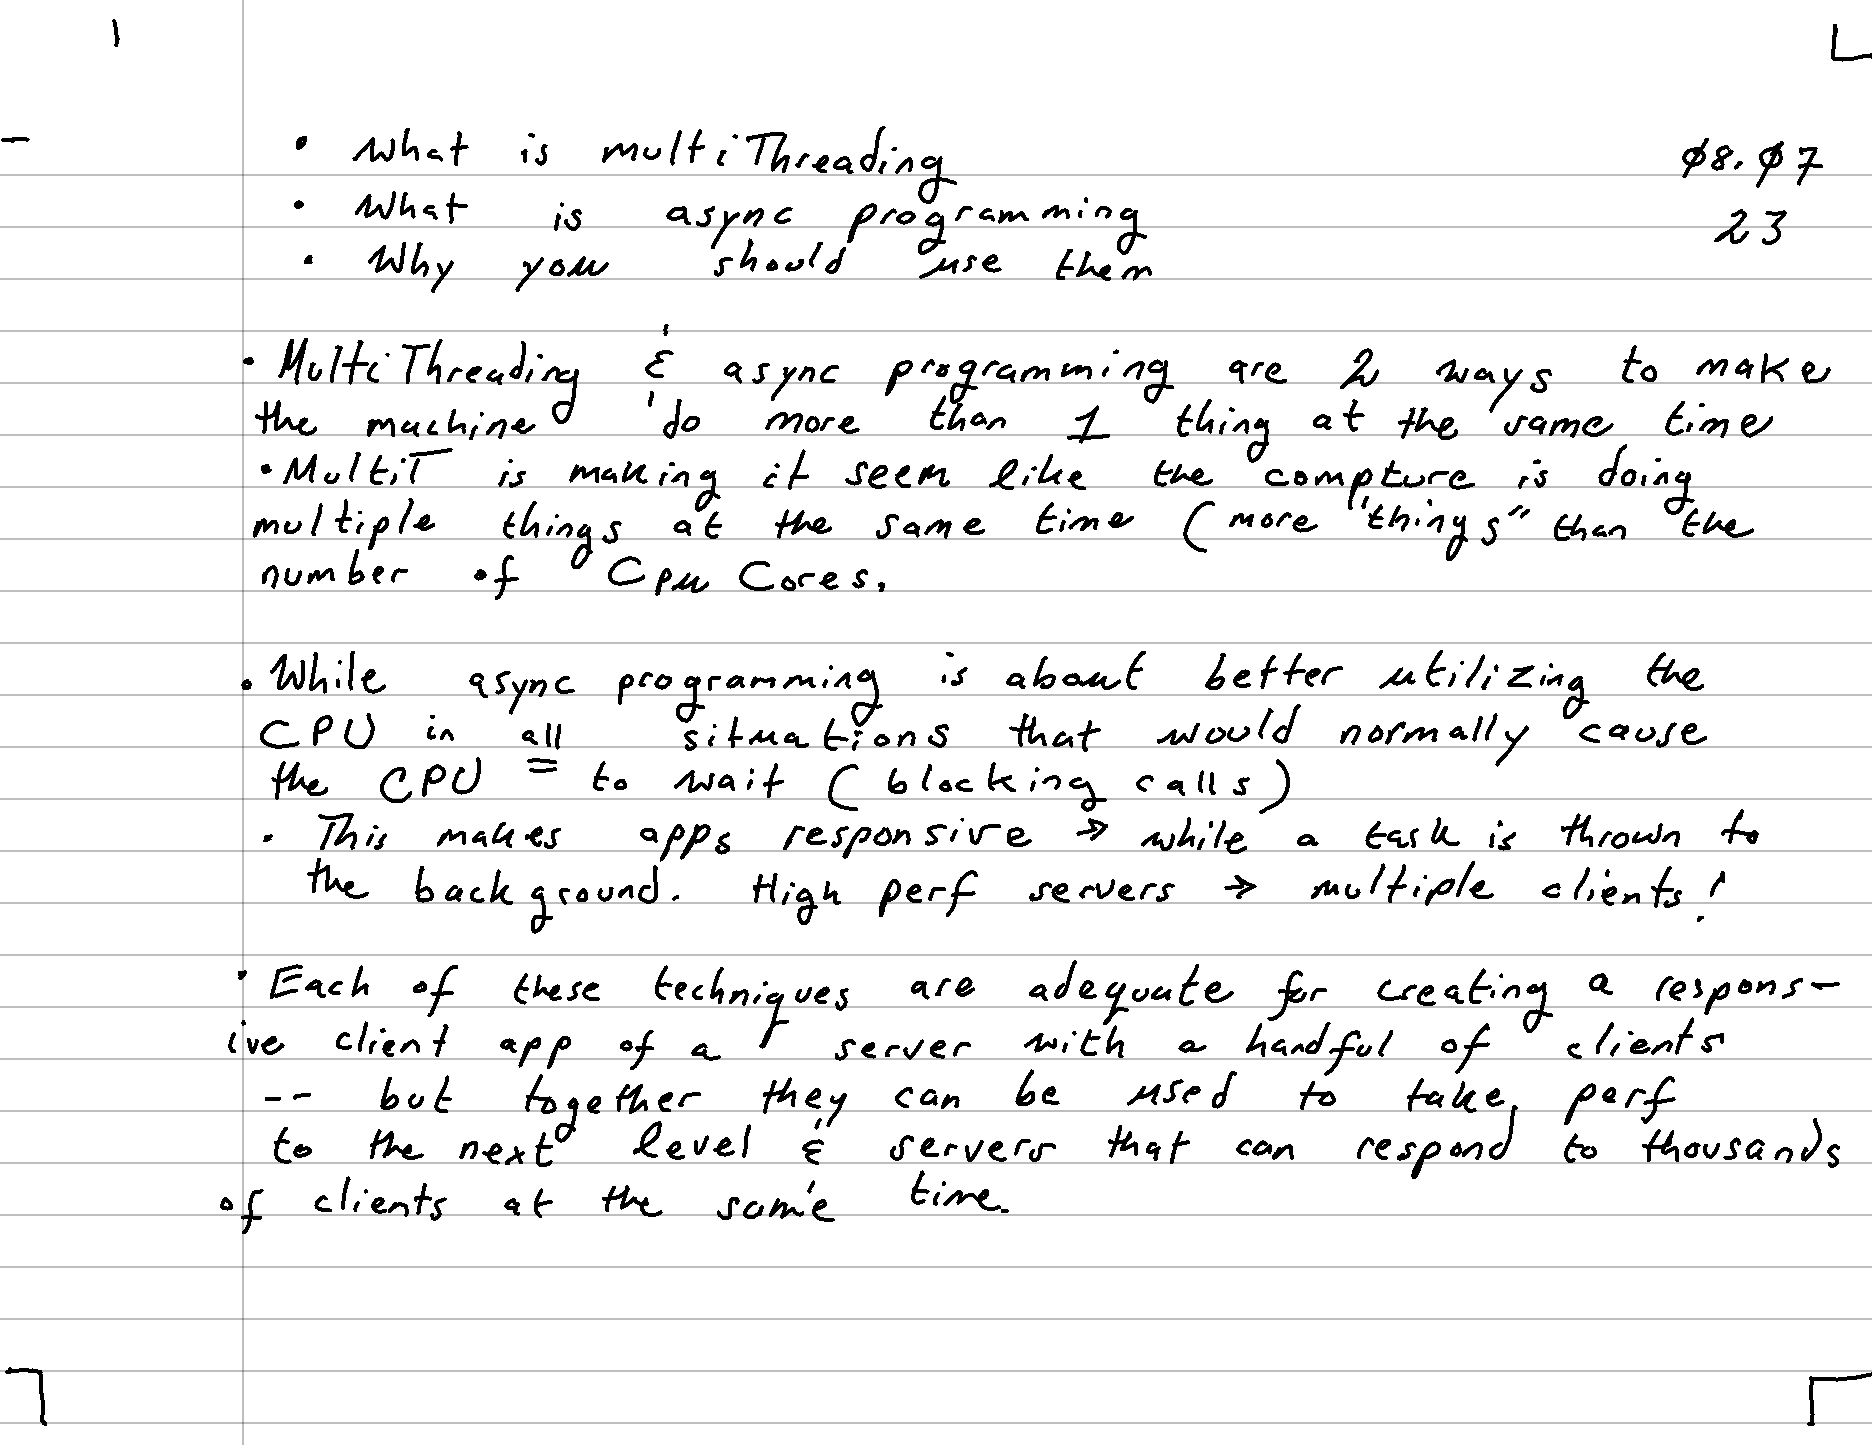 • What is multiThreading
Ø8.Ø7
• What is async programming
23
• Why you should use them
• MultiThreading & async programming are 2 ways to make
the machine do more than 1 thing at the same time
• MultiT is making it seem like the compture is doing
multiple things at the same time (more "things" than the
number of Cpu Cores.
• While async programming is about better utilizing the
CPU in all situations that would normally cause
the CPU to wait (blocking calls)
• This makes apps responsive → while a task is thrown to
the background. High perf servers → multiple clients!
• Each of these techniques are adequate for creating a respons-
ive client app of a server with a handful of clients
-- but together they can be used to take perf
to the next level & servers that can respond to thousands
of clients at the same time.